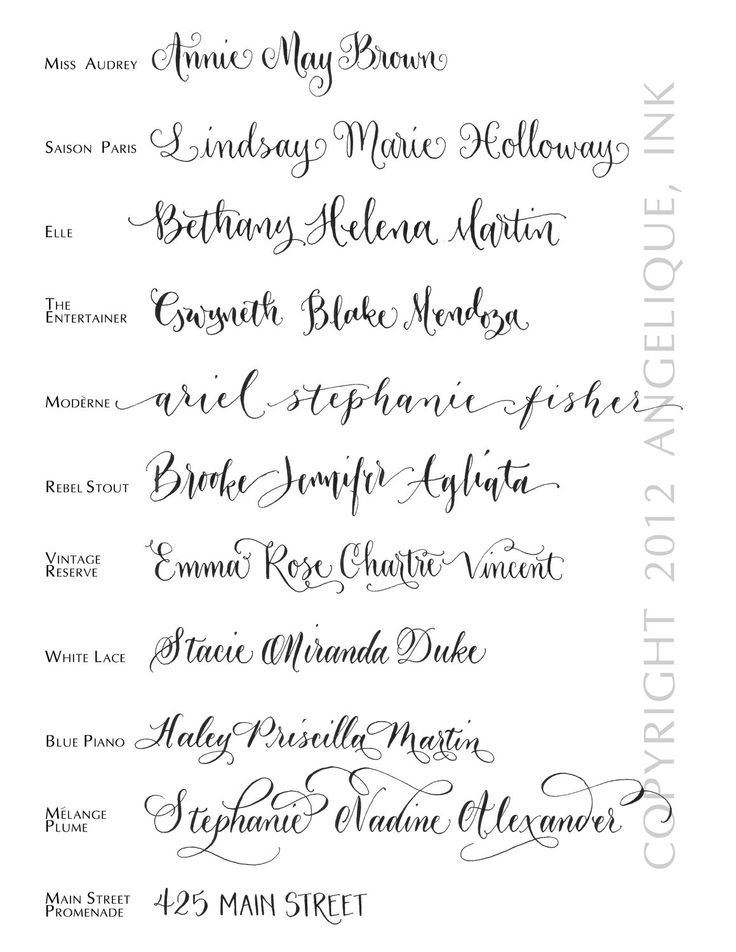 MISS AUDREY Annie May Brown
SAISON PARIS Lindsay Marie Holloway
ELLE Bethany Helena Martin
THE
ENTERTAINER Gwyneth Blake Mendoza
MODÈRNE ariel stephanie fisher
REBEL STOUT Brooke Jennifer Agliata
VINTAGE
RESERVE Emma Rose Chartre Vincent
WHITE LACE Stacie Miranda Duke
BLUE PIANO Haley Priscilla Martin
MÉLANGE
PLUME Stephanie Nadine Alexander
MAIN STREET
PROMENADE 425 MAIN STREET
COPYRIGHT 2012 ANGELIQUE, INK